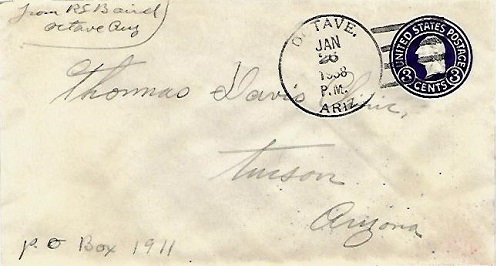 from R.S. Baird
Octave Ariz
OCTAVE.
JAN
26
1938
P.M.
ARIZ.
UNITED STATES POSTAGE
3 CENTS 3
Thomas Davis Clinic,
Tucson
Arizona
P.O Box 1911